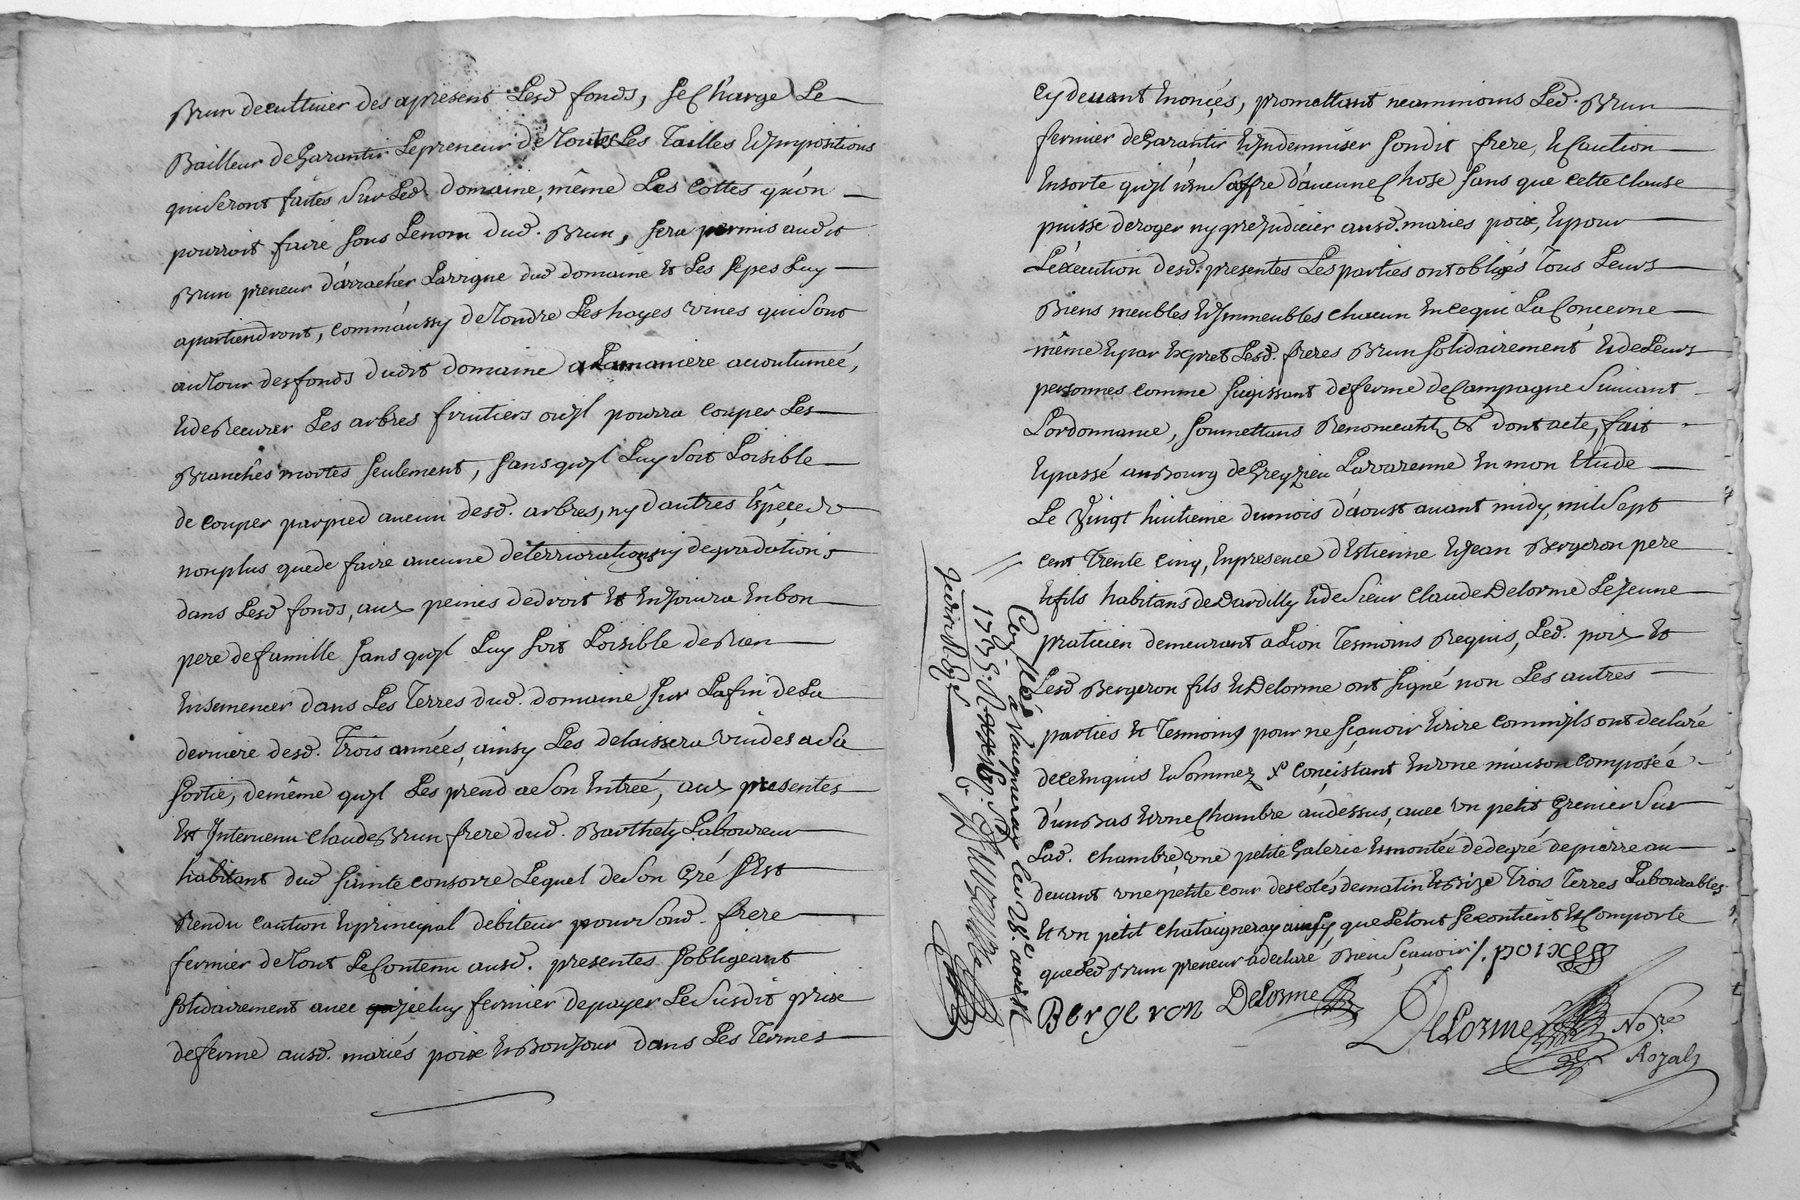 Brun de cultiver des apresent Lesd fonds, se Charge Le
Bailleur de Garantir Le preneur de Toutes Les Tailles et Impositions
qui seront faites sur Led. domaine, même Les Cottes qu'on
pourroit faire sous Le nom dud. Brun, sera permis audit
Brun preneur d'arracher La vigne dud domaine et Les sepes Luy
apartiendront, comm'aussy de Tondre Les hayes vives qui sont
au Tour des fonds dudit domaine a La maniere accoutumeé,
et de Recurer Les arbres fruitiers ou jl pourra couper Les
Branches mortes seulement, sans qu'jl Luy soit Loisible
de couper par pied aucun desd. arbres, ny d'autres Espeçe
non plus que de faire aucune deterriorations ny degradations
dans Lesd fonds, aux peines de droit et En Jouira En bon
pere de famille sans qu'jl Luy soit Loisible de Rien
Ensemencer dans Les Terres dud. domaine sur La fin de La
derniere desd. Trois années, ainsy Les delaissera vuides a sa
sortie, de même qu'jl Les prend a son Entrée, aux presentes
Est Intervenu Claude Brun frere dud. Barthely Laboureur
habitant dud sainte Consorce Lequel de son Gré s'Est
Rendu caution et principal debiteur pour sond. frere
fermier de Tout Le Contenu ausd. presentes s'obligeant
solidairement avec jceluy fermier de payer Le susdit prix
de ferme ausd. mariés poix et Bonjour dans Les Termes
cy devant Enonçés, promettant neammoins Led. Brun
fermier de Garantir et Indemniser sondit frere, et Caution
En sorte qu'jl n'En soffre d'aucune Chose sans que cette Clause
puisse deroger ny prejudicier ausd. mariés poix, et pour
L'éxécution desd. presentes Les parties ont obligés Tous Leurs
Biens meubles et Jmmeubles chacun En ce qui La Concerne
même et par Expret Lesd. freres Brun solidairement et de Leurs
personnes comme s'agissant de ferme de Campagne suivant
L'ordonnance, soumettans Renonceant &c dont acte, fait
et passé au Bourg de Grezieu La varenne En mon Etude
Le Vingt huitieme du mois d'aoust avant midy, mil sept
cent Trente cinq, En presence d'Estienne et Jean Bergeron pere
et fils habitans de Dardilly et de sieur Claude Delorme Le Jeune
praticien demeurant a Lion Tesmoins Requis, Led. poix et
Lesd Bergeron fils et Delorme ont signé non Les autres
parties et Tesmoins pour ne sçavoir Ecrire comm'jls ont declaré
de ce Enquis et sommez x Conçistant En une maison composée
d'un Bas et une Chambre au dessus, avec un petit Grenier sur
Lad. chambre, une petite Galerie et montée de degré de pierre au
devant une petite cour des cotés de matin et Bize Trois Terres Labourables
et un petit chataigneray ainsy que Le tout se contient et Comporte
que Led Brun preneur a declaré Bien sçavoir /. poix
Bergeron Delorme
DeLorme No.re
Royal
Con.llé a Vaugneray Le 28.e aoust
1735. R